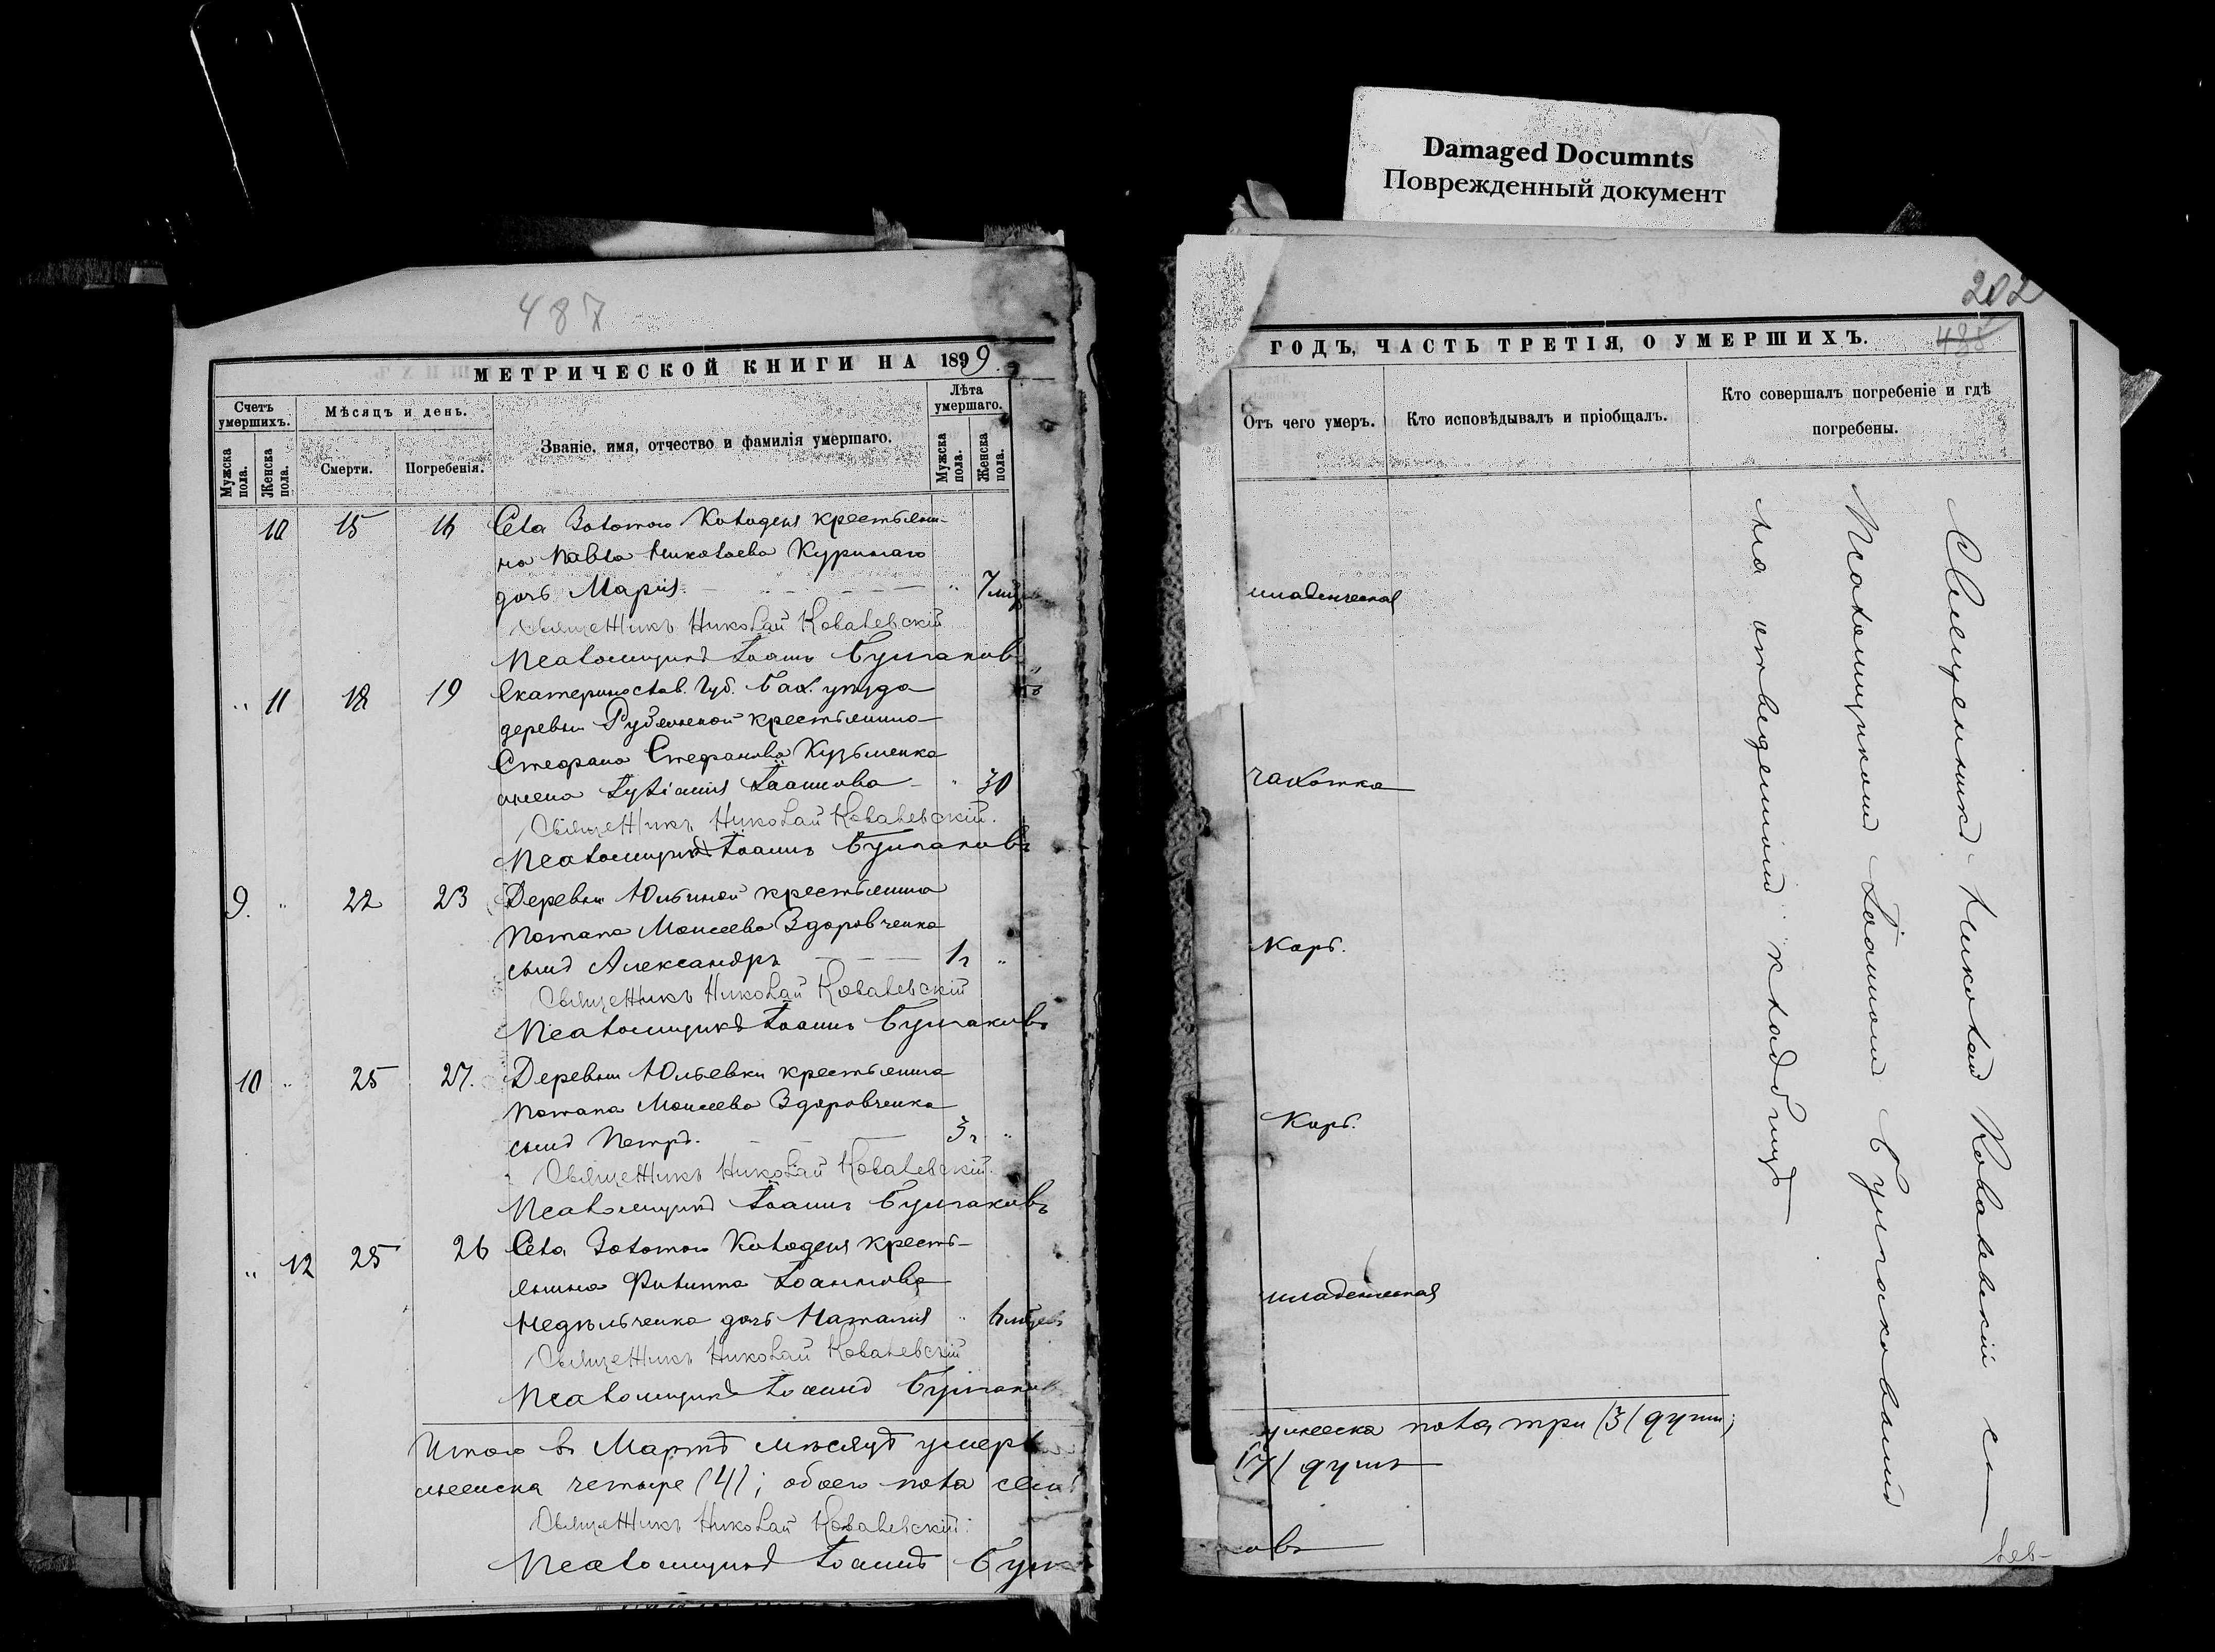 Damaged Documnts
Поврежденный документ
487
МЕТРИЧЕСКОЙ КНИГИ НА 1899
Счетъ умершихъ.
Мѣсяцъ и день.
Званіе, имя, отчество и фамилія умершаго.
Лѣта умершаго.
Мужска пола.
Женска пола.
Смерти.
Погребенія.
Мужска пола.
Женска пола.
10 15 16 Села Золотого Колодезя крестьяни-
на Павла Николаева Куринаго
дочь Марія - - - " 7 мѣс
Священникъ Николай Ковалевскій
Псаломщикъ Іоаннъ Булгаковъ
" 11 18 19 Екатеринослав. Губ. Бах. уѣзда
деревни крестьянина
Стефана Стефанова Кузьменка
жена Іуліанія Іоаннова - " 30
Священникъ Николай Ковалевскій.
Псаломщикъ Іоаннъ Булгаковъ
9. " 22 23 Деревни крестьянина
Потапа Моисеева Здоровченка
сынъ Александръ - - - 1 г "
Священникъ Николай Ковалевскій
Псаломщикъ Іоаннъ Булгаковъ
10 " 25 27. Деревни Юльевки крестьянина
Потапа Моисеева Здоровченка
сынъ Петръ. - - - 3 г "
Священникъ Николай Ковалевскій.
Псаломщикъ Іоаннъ Булгаковъ
" 12 25 26 Села Золотого Колодезя кресть-
янина Филиппа Іоаннова
Недѣльченка дочь Наталія " 6 мѣсцевъ
Священникъ Николай Ковалевскій
Псаломщикъ Іоаннъ Булгаков
Итого въ Мартѣ мѣсяцѣ умерл
женска четыре (4); обоего пола сем
Священникъ Николай Ковалевскій.
Псаломщикъ Іоаннъ Булг
202
488
ГОДЪ, ЧАСТЬ ТРЕТІЯ, О УМЕРШИХЪ.
Отъ чего умеръ.
Кто исповѣдывалъ и пріобщалъ.
Кто совершалъ погребеніе и гдѣ
погребены.
младенческая
чахотка
Корь.
Корь.
младенческая
Священникъ Николай Ковалевскій съ
Псаломщикомъ Іоанномъ Булгаковымъ
на отведенномъ кладбищѣ
мужеска пола три (3) души;
(7) душъ
овъ